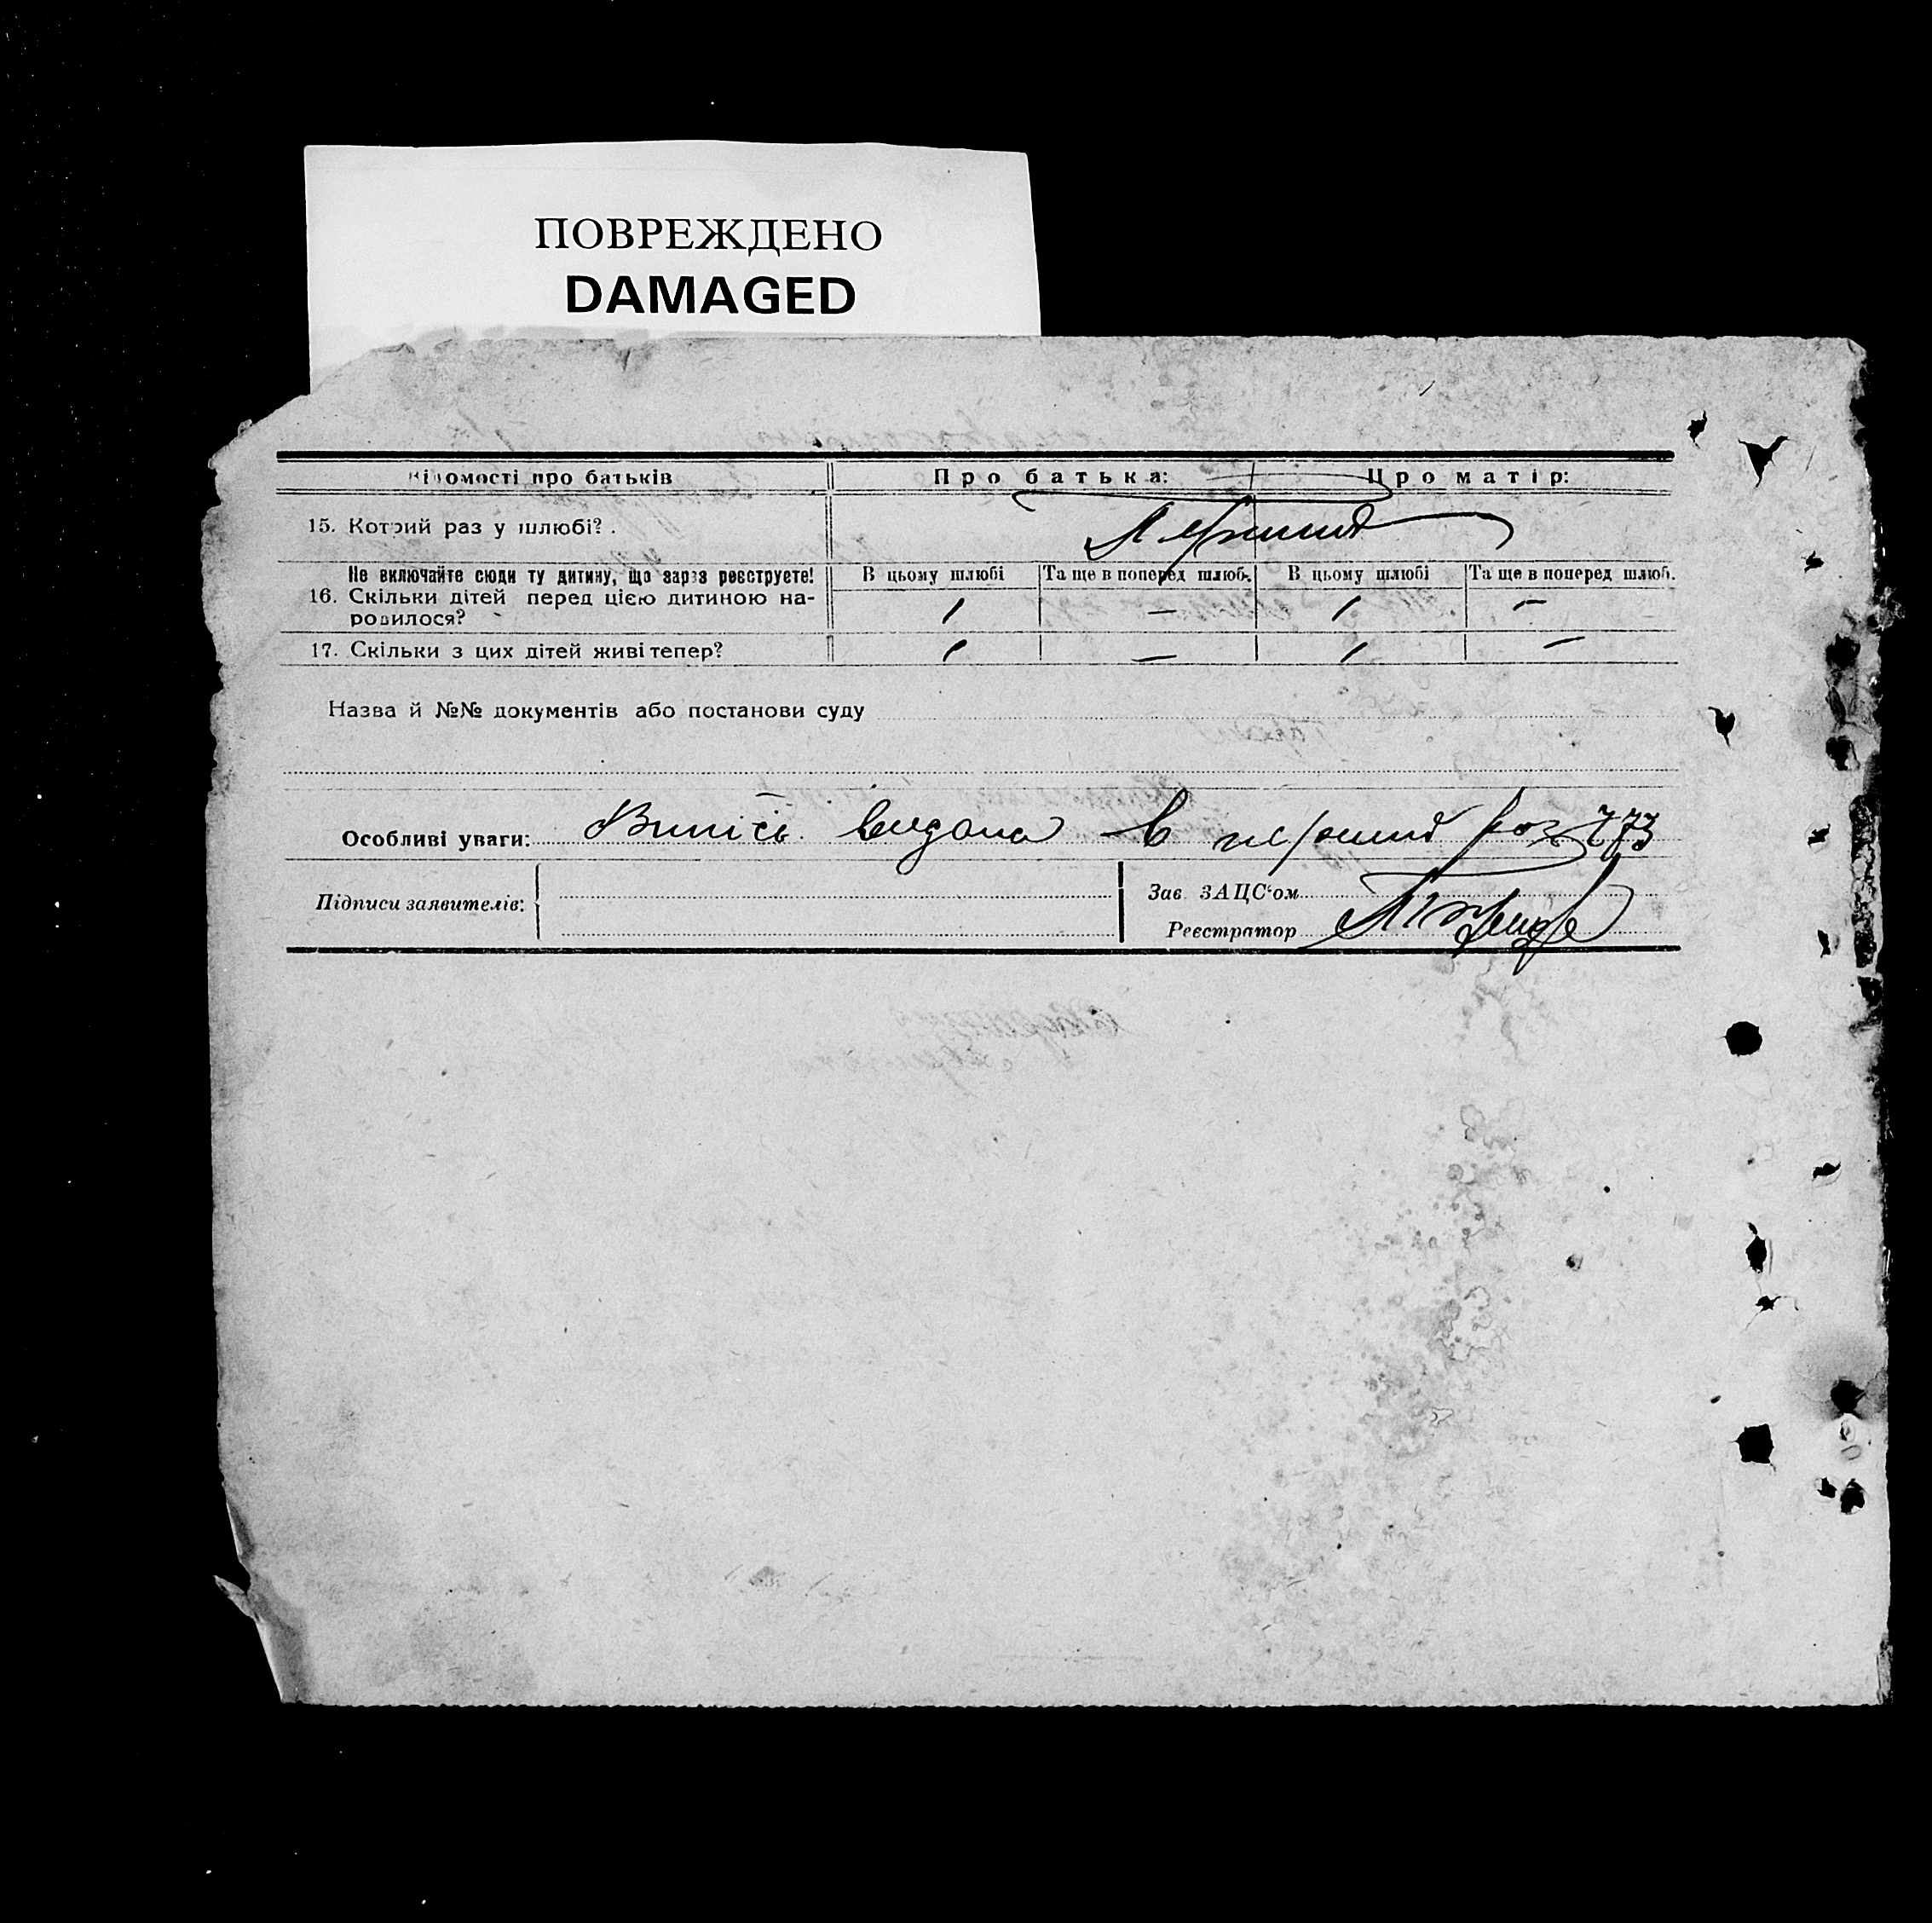 ПОВРЕЖДЕНО
DAMAGED
Відомості про батьків Про батька: Про матір:
15. Котрий раз у шлюбі?. Перший
Не включайте сюди ту дитину, що зараз реєструєте! В цьому шлюбі Та ще в поперед шлюб. В цьому шлюбі Та ще в поперед шлюб.
16. Скільки дітей перед цією дитиною на- 1 — 1 —
родилося?
17. Скільки з цих дітей живі тепер? 1 — 1 —
Назва й №№ документів або постанови суду
Особливі уваги: Випісь видана в перший раз 773
Підписи заявителів: Зав ЗАЦС'ом
Реєстратор